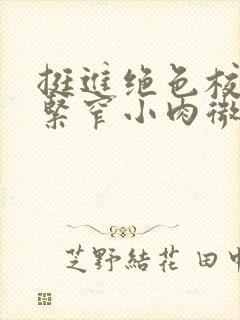 挺進绝色校
緊窄小肉微
芝野結花 田中